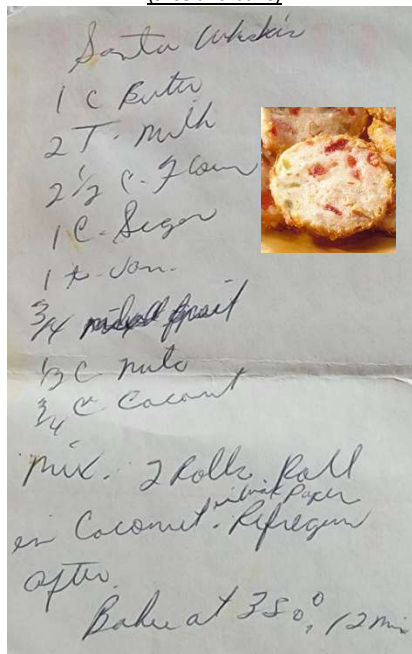 Santa Whiskers
1 C Butter
2 T. Milk
2 1/2 C. Flour
1 C. Sugar
1 t. Van.
3/4 mixed fruit
1/3 C nuts
3/4 C Coconut
Mix. 2 Rolls. Roll
in wax Paper
in Coconut. Refrigerate
after.
Bake at 350°, 12 min